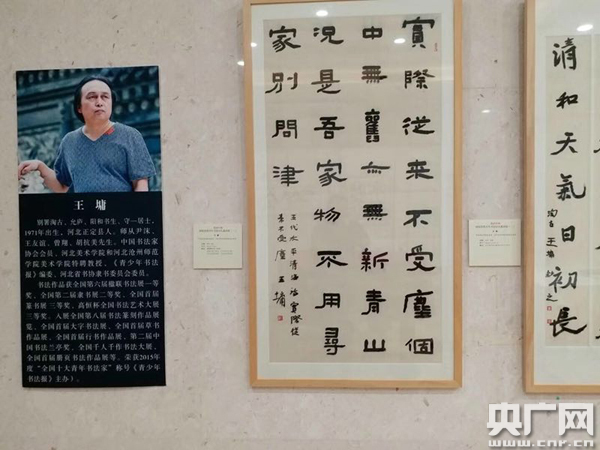 王 墉
别署淘古、允庐、阳和书生、守一居士,
1971年出生,河北正定县人。师从尹沫、
王友谊、曾翔、胡抗美先生,中国书法家
协会会员、河北美术学院和河北沧州师范
学院美术学院特聘教授、《青少年书法
报》编委、河北省书协隶书委员会委员。
书法作品获全国第六届楹联书法展一等
奖、全国第二届隶书展二等奖、全国首届
篆书展三等奖、高恒杯全国书法艺术大展
三等奖、入展全国第八届书法篆刻作品展
览、全国首届大字书法展、全国首届草书
作品展、全国首届行书作品展、第二届中
国书法兰亭奖、全国千人千作书法大展、
全国首届册页书法作品展等。荣获2015年
度“全国十大青年书法家”称号《青少年
书法报》主办)。
實際従来不受塵個
中無舊亦無新青山
況是吾家物不用尋
家別問津
王墉
清和天氣日初長
淘古王墉
央广网
www.cnr.cn